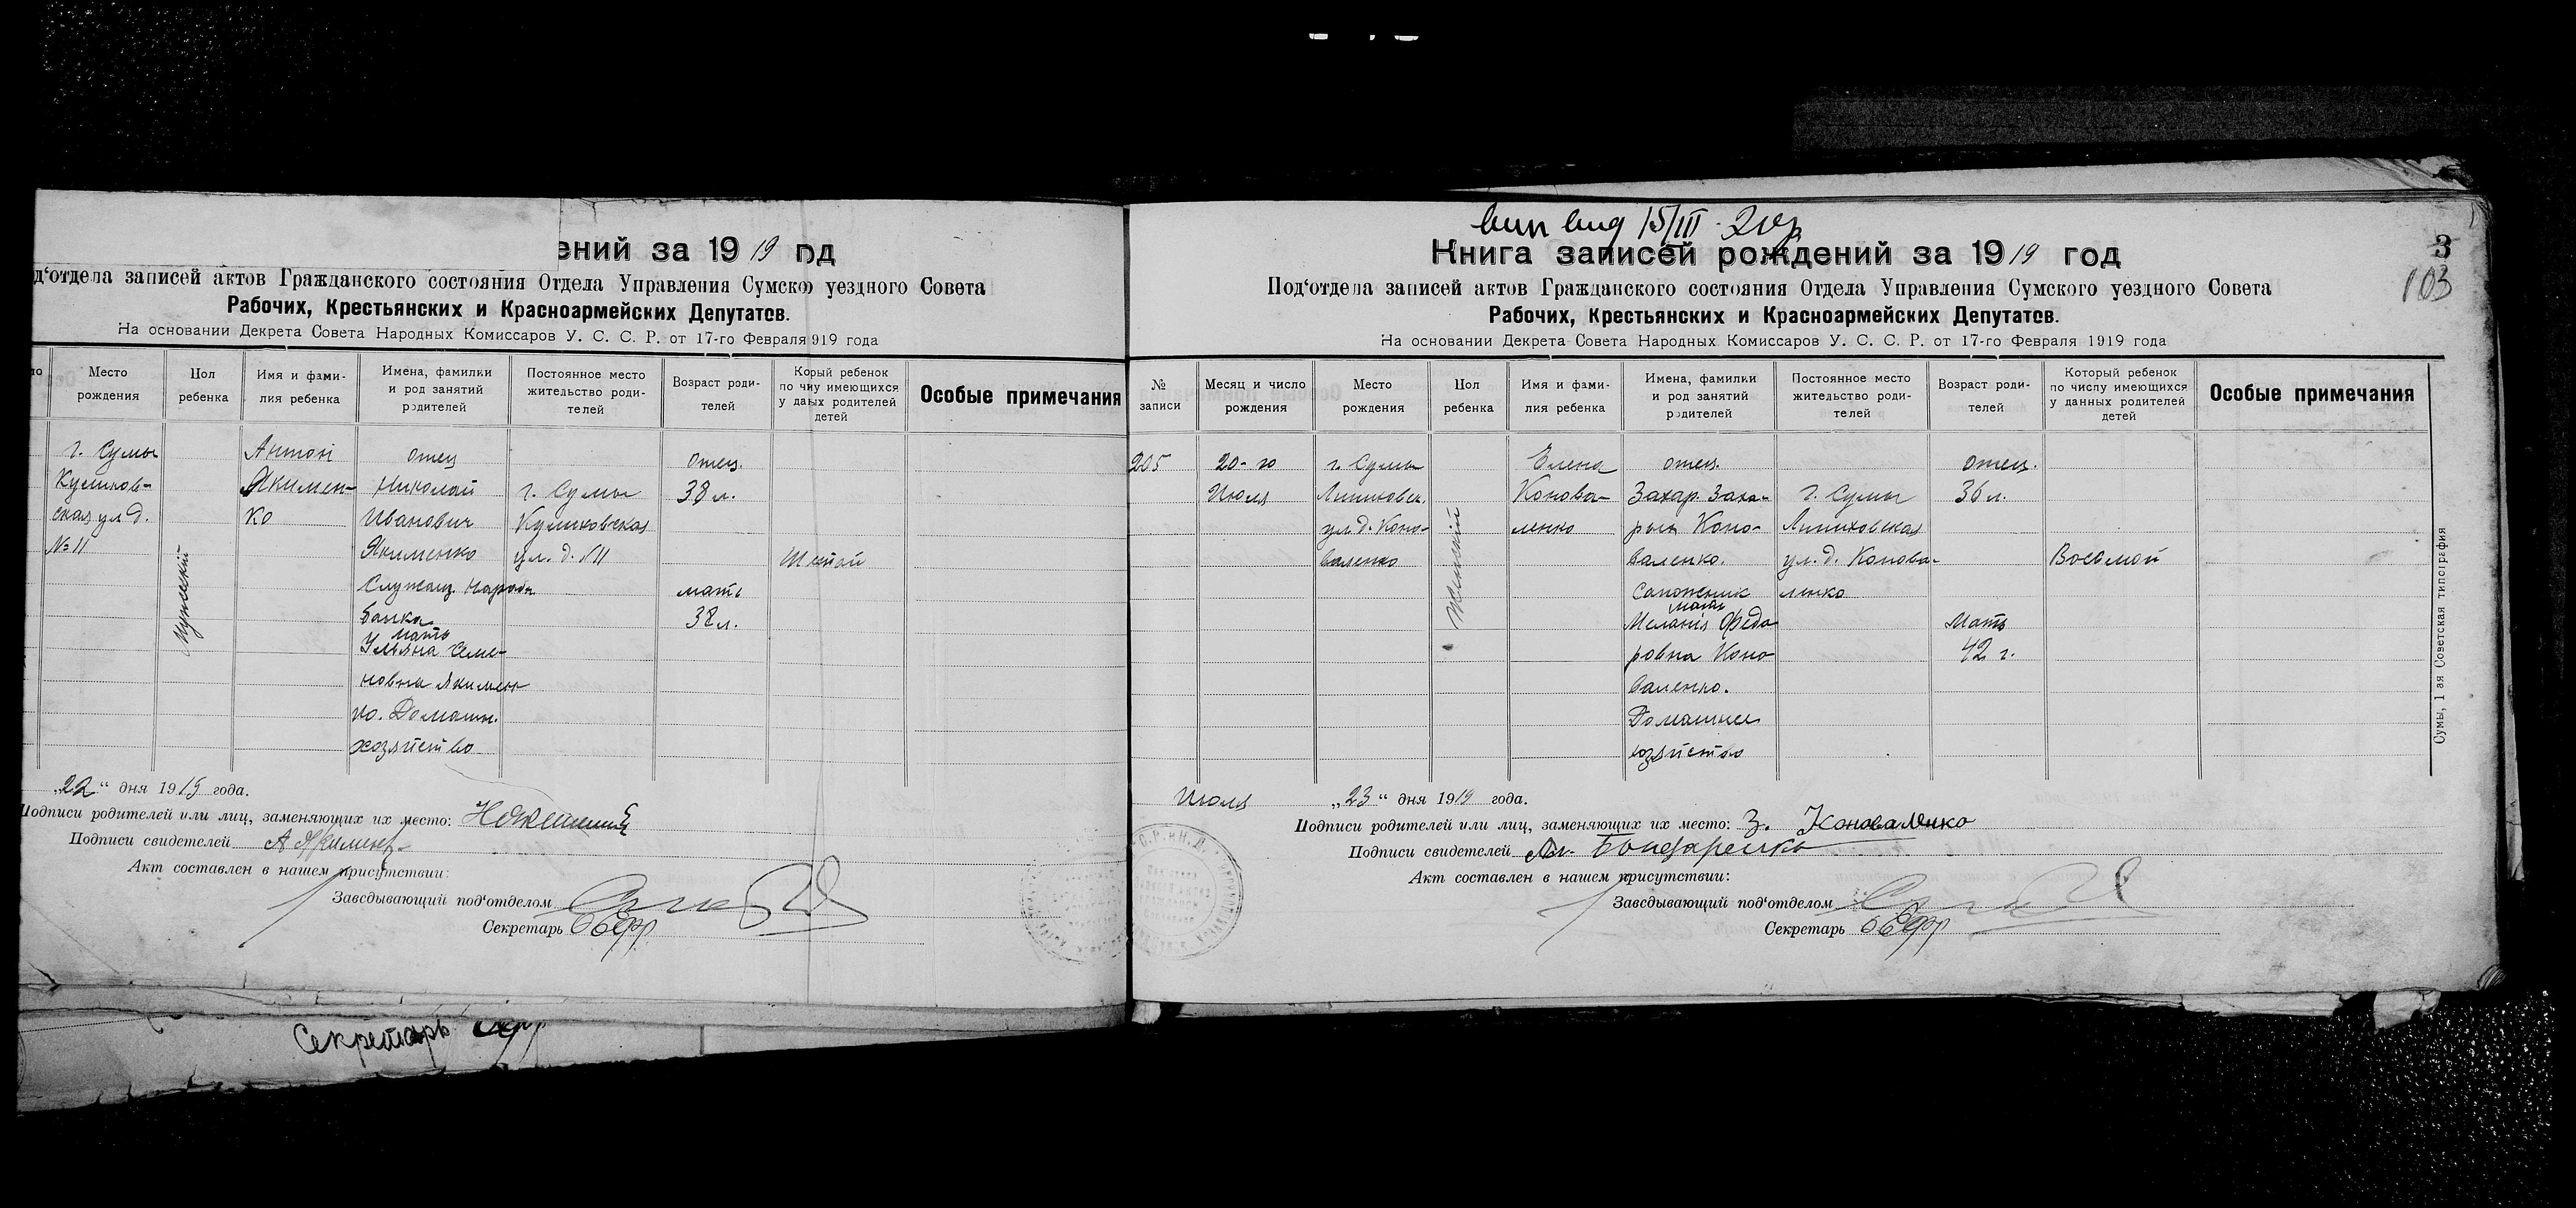 ений за 1919 год
д‘отдела записей актов Гражданского состояния Отдела Управления Сумско уездного Совета
Рабочих, Крестьянских и Красноармейских Депутатов.
На основании Декрета Совета Народных Комиссаров У. С. С. Р. от 17-го Февраля 919 года
Место рождения
Пол ребенка
Имя и фами-
лия ребенка
Имена, фамилии
и род занятий
родителей
Постоянное место
жительство роди-
телей
Возраст роди-
телей
Корый ребенок
по чиу имеющихся
у даых родителей
детей
Особые примечания
г. Сумы
Куликов-
ская ул д.
№ 11
Мужеский
Антон
Якимен-
ко
отец
Николай
Иванович
Якименко
Служащ. Народн
банка
мать
Ульяна Семе-
новна Якимен
ко. Домашн.
хозяйство
г. Сумы
Куликовская
ул. д. №11
отец.
38 л.
мать
38 л.
Шестой
„22“ дня 1919 года.
Подписи родителей или лиц, заменяющих их место:
Подписи свидетелей А Якимен
Акт составлен в нашем присутствии:
Заведывающий под‘отделом
Секретарь
Секретарь
15/III
Книга записей рождений за 1919 год
3
103
Под‘отдела записей актов Гражданского состояния Отдела Управления Сумского уездного Совета
Рабочих, Крестьянских и Красноармейских Депутатов.
На основании Декрета Совета Народных Комиссаров У. С. С. Р. от 17-го Февраля 1919 года
№
записи
Месяц и число
рождения
Место
рождения
Пол
ребенка
Имя и фами-
лия ребенка
Имена, фамилии
и род занятий
родителей
Постоянное место
жительство роди-
телей
Возраст роди-
телей
Который ребенок
по числу имеющихся
у данных родителей
детей
Особые примечания
205
20-го
Июля
г. Сумы
ул. д. Коно-
валенко
Женский
Елена
Конова-
ленко
отец.
Захар. Заха-
рыч Коно-
валенко.
Сапожник
мать
Меланія Федо
ровна Коно-
валенко.
Домашнее
хозяйство
г. Сумы
ул. д. Конова-
ленко
отец.
36 л.
Мать
42 г.
Восьмой
Июля „23“ дня 1919 года.
Подписи родителей или лиц, заменяющих их место: З. Коноваленко
Подписи свидетелей Бондаренко
Акт составлен в нашем присутствии:
Заведывающий под‘отделом
Секретарь
Сумы, 1 ая Советская типография